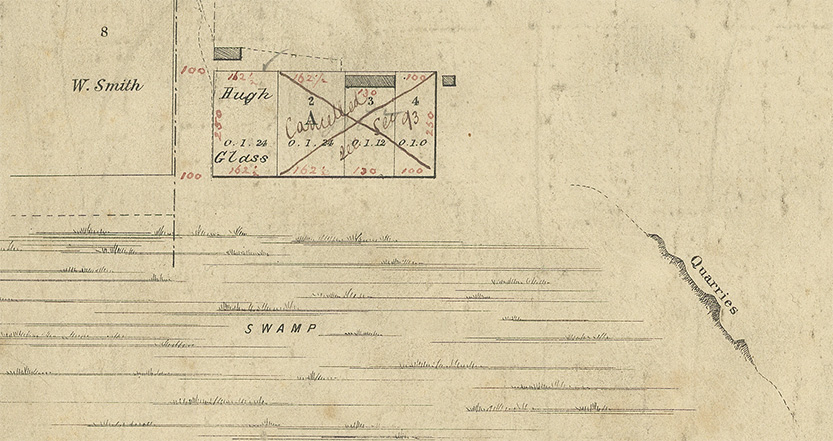 8
W. Smith
100
162½
162½
100
Hugh
130
2
3
4
A
Cancelled
250
250
see
93
0.1.24
0.1.24
0.1.12
0.1.0
Glass
100
162½
162½
130
100
SWAMP
Quarries